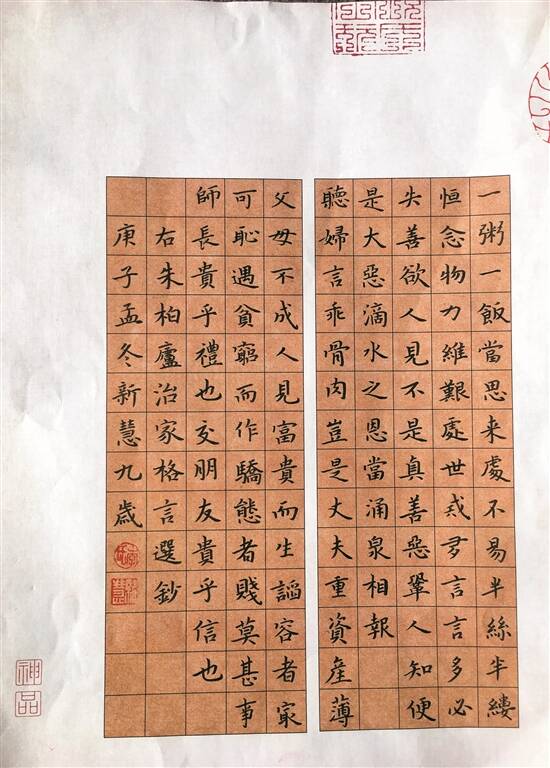 一粥一飯當思来處不易半絲半縷
恒念物力維艱處世戒多言言多必
失善欲人見不是真善惡鞏人知便
是大惡滴水之恩當涌泉相報
聽婦言乖骨肉豈是丈夫重資産薄
父母不成人見富貴而生諂容者冣
可恥遇貧窮而作驕態者賤莫甚事
師長貴乎禮也交朋友貴乎信也
右朱柏廬治家格言選鈔
庚子孟冬新慧九歲
神品